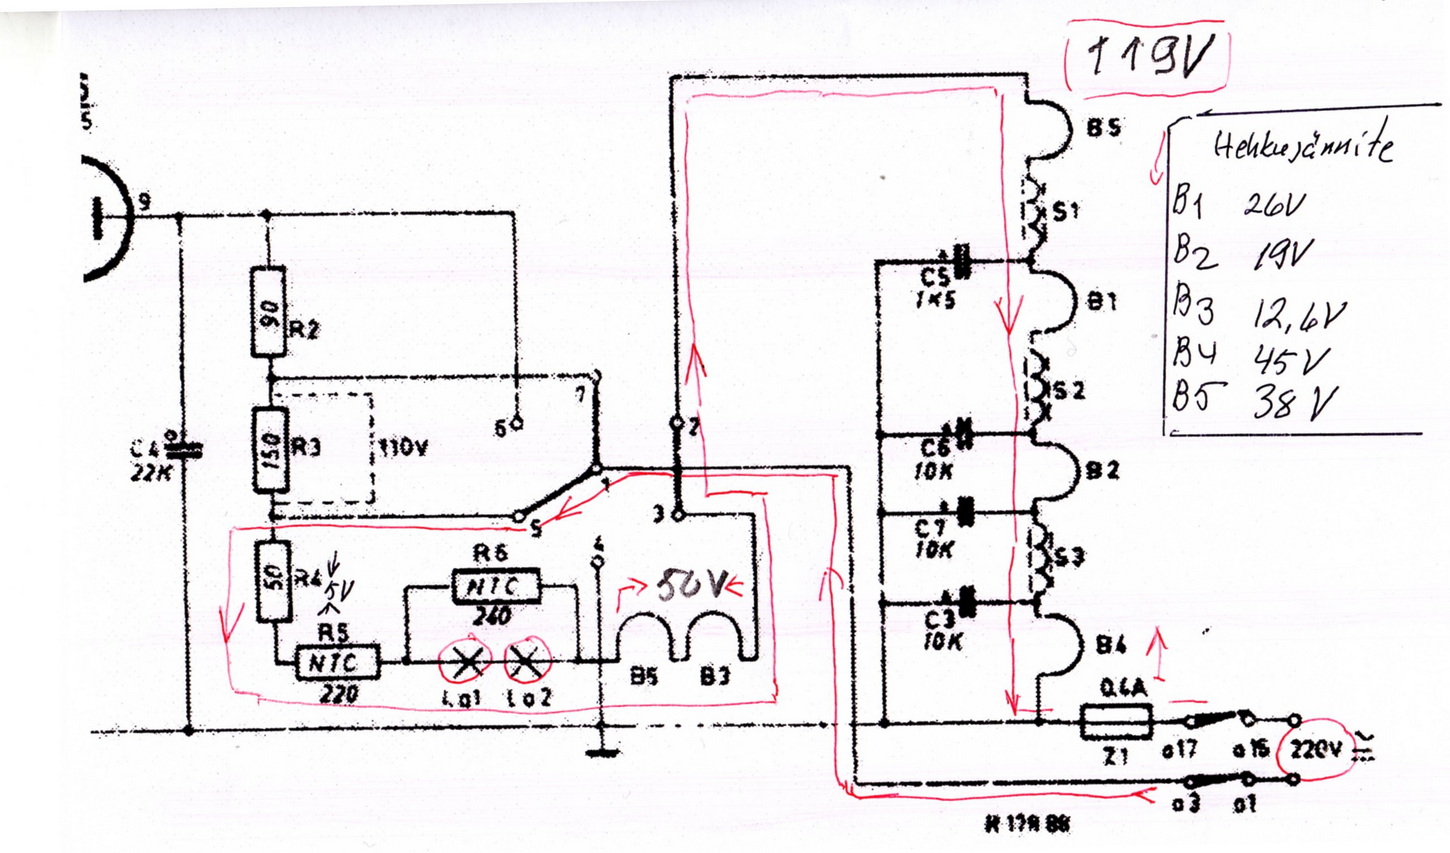 119V
B5
Hehkujännite
B1 26V
B2 19V
B3 12,6V
B4 45V
B5 38V
9
S1
C5
1K5
B1
90
R2
7
S2
6
2
C4
22K
150
R3
110V
C6
10K
B2
1
3
5
C7
10K
S3
50
R4
5V
R6
NTC
240
4
50V
C3
10K
B4
R5
NTC
220
Lo1
Lo2
B5
B3
0.4A
Z1
a17
a16
220V
a3
a1